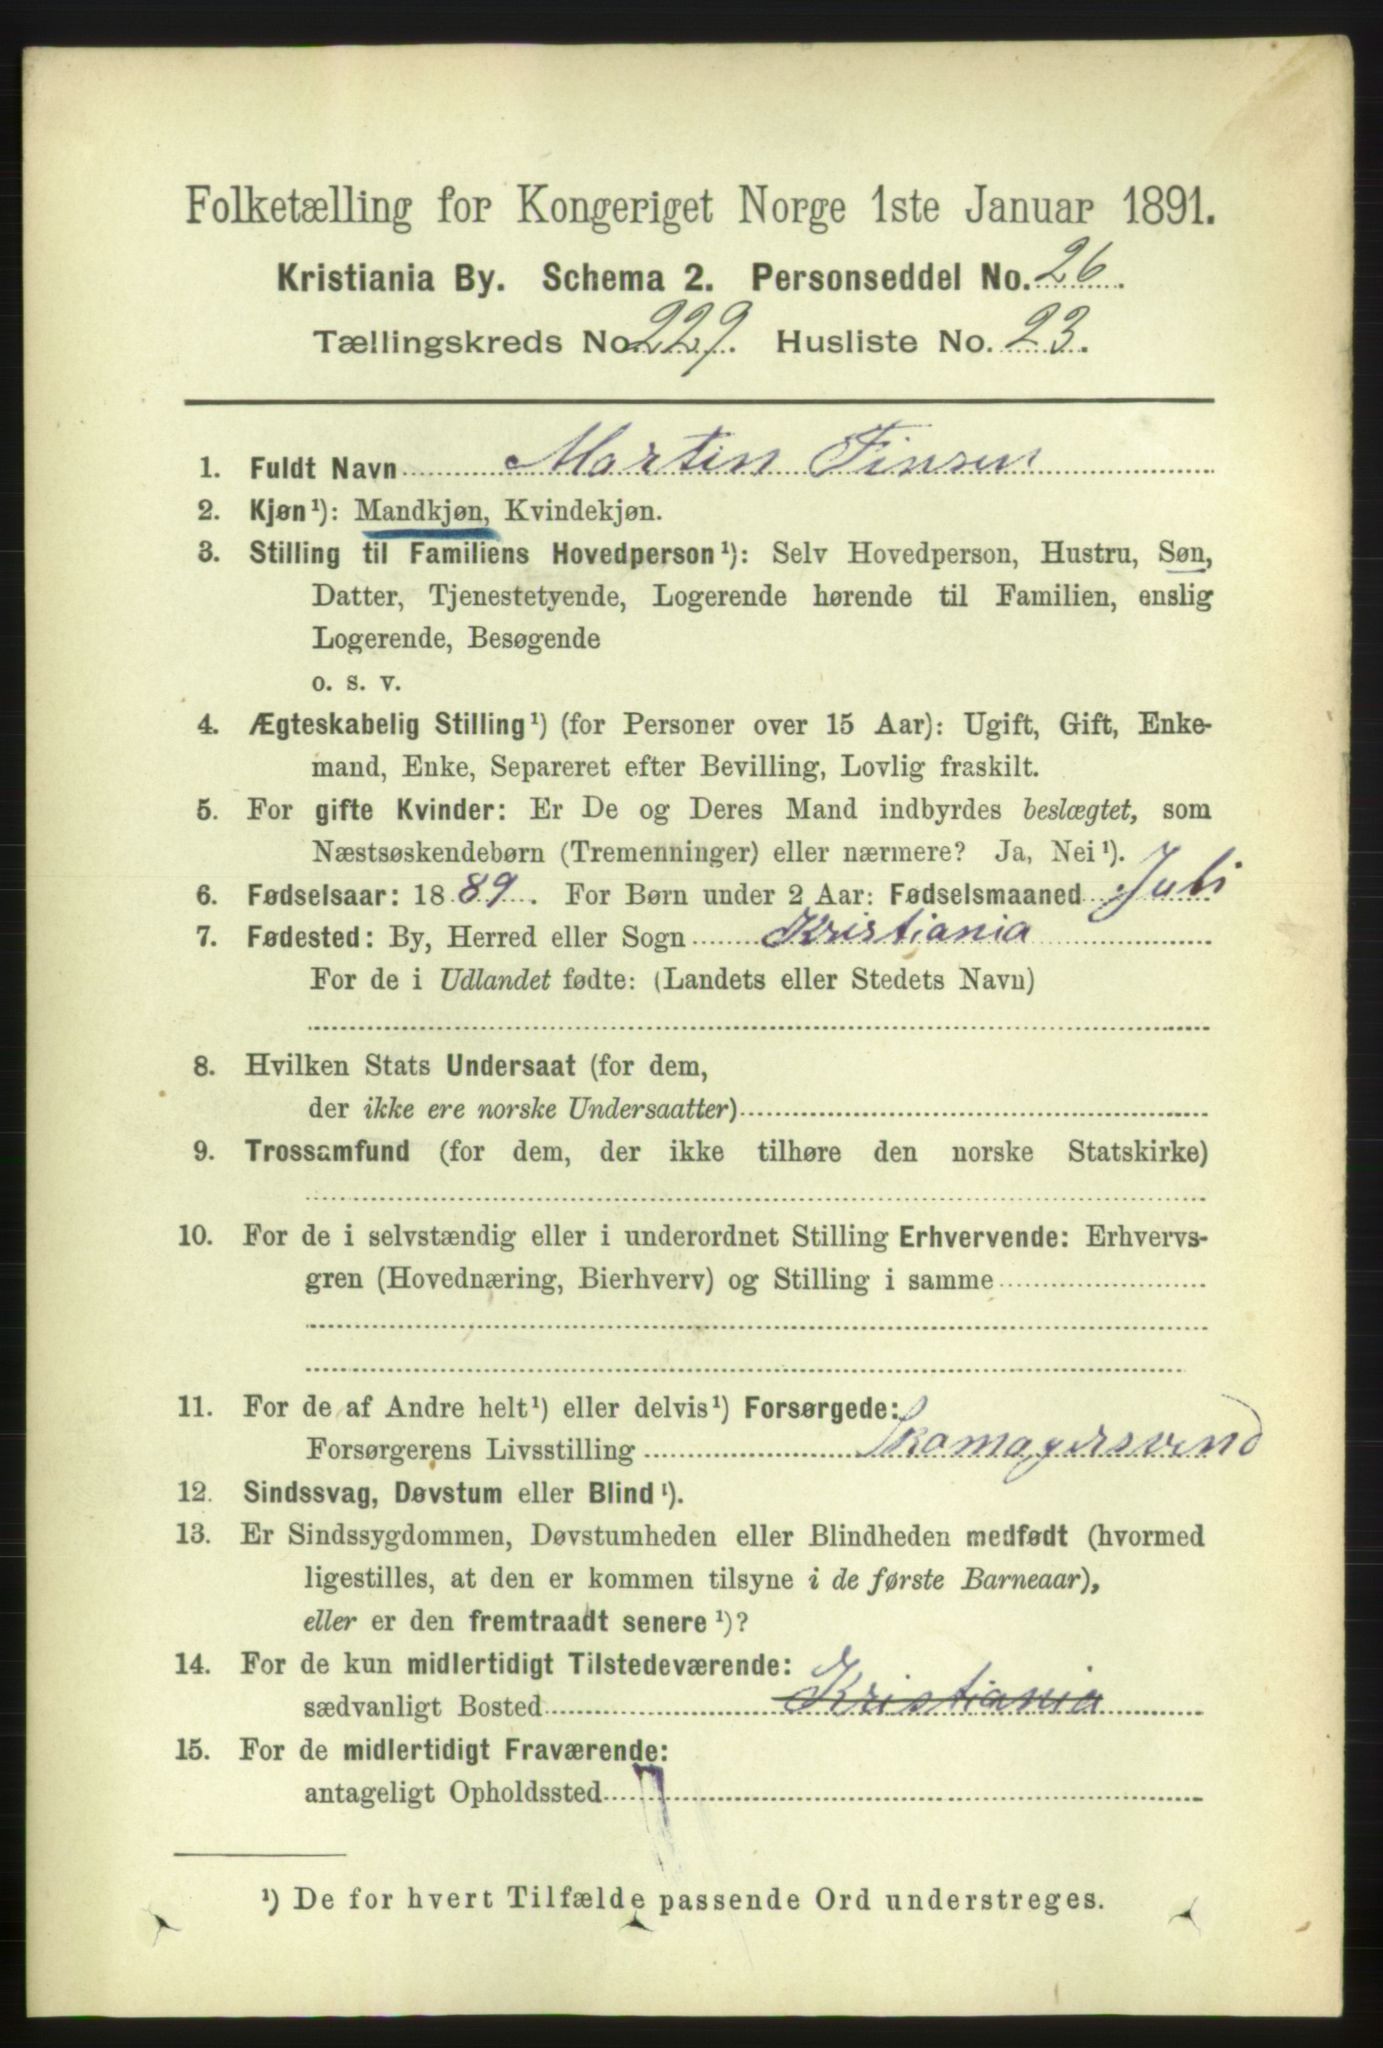 Folketælling for Kongeriget Norge 1ste Januar 1891.
Kristiania By. Schema 2. Personseddel No. 26.
Tællingskreds No 229. Husliste No. 23.
1. Fuldt Navn Martin Finsen
2. Kjøn¹): Mandkjøn, Kvindekjøn.
3. Stilling til Familiens Hovedperson¹): Selv Hovedperson, Hustru, Søn,
Datter, Tjenestetyende, Logerende hørende til Familien, enslig
Logerende, Besøgende
o. s. v.
4. Ægteskabelig Stilling¹) (for Personer over 15 Aar): Ugift, Gift, Enke-
mand, Enke, Separeret efter Bevilling, Lovlig fraskilt.
5. For gifte Kvinder: Er De og Deres Mand indbyrdes beslægtet, som
Næstsøskendebørn (Tremenninger) eller nærmere? Ja, Nei¹).
6. Fødselsaar: 1889. For Børn under 2 Aar: Fødselsmaaned Juli
7. Fødested: By, Herred eller Sogn Kristiania
For de i Udlandet fødte: (Landets eller Stedets Navn)
8. Hvilken Stats Undersaat (for dem,
der ikke ere norske Undersaatter)
9. Trossamfund (for dem, der ikke tilhøre den norske Statskirke)
10. For de i selvstændig eller i underordnet Stilling Erhvervende: Erhvervs-
gren (Hovednæring, Bierhverv) og Stilling i samme
11. For de af Andre helt¹) eller delvis¹) Forsørgede:
Forsørgerens Livsstilling Skomagersvend
12. Sindssvag, Døvstum eller Blind¹).
13. Er Sindssygdommen, Døvstumheden eller Blindheden medfødt (hvormed
ligestilles, at den er kommen tilsyne i de første Barneaar),
eller er den fremtraadt senere¹)?
14. For de kun midlertidigt Tilstedeværende:
sædvanligt Bosted Kristiania
15. For de midlertidigt Fraværende:
antageligt Opholdssted
¹) De for hvert Tilfælde passende Ord understreges.